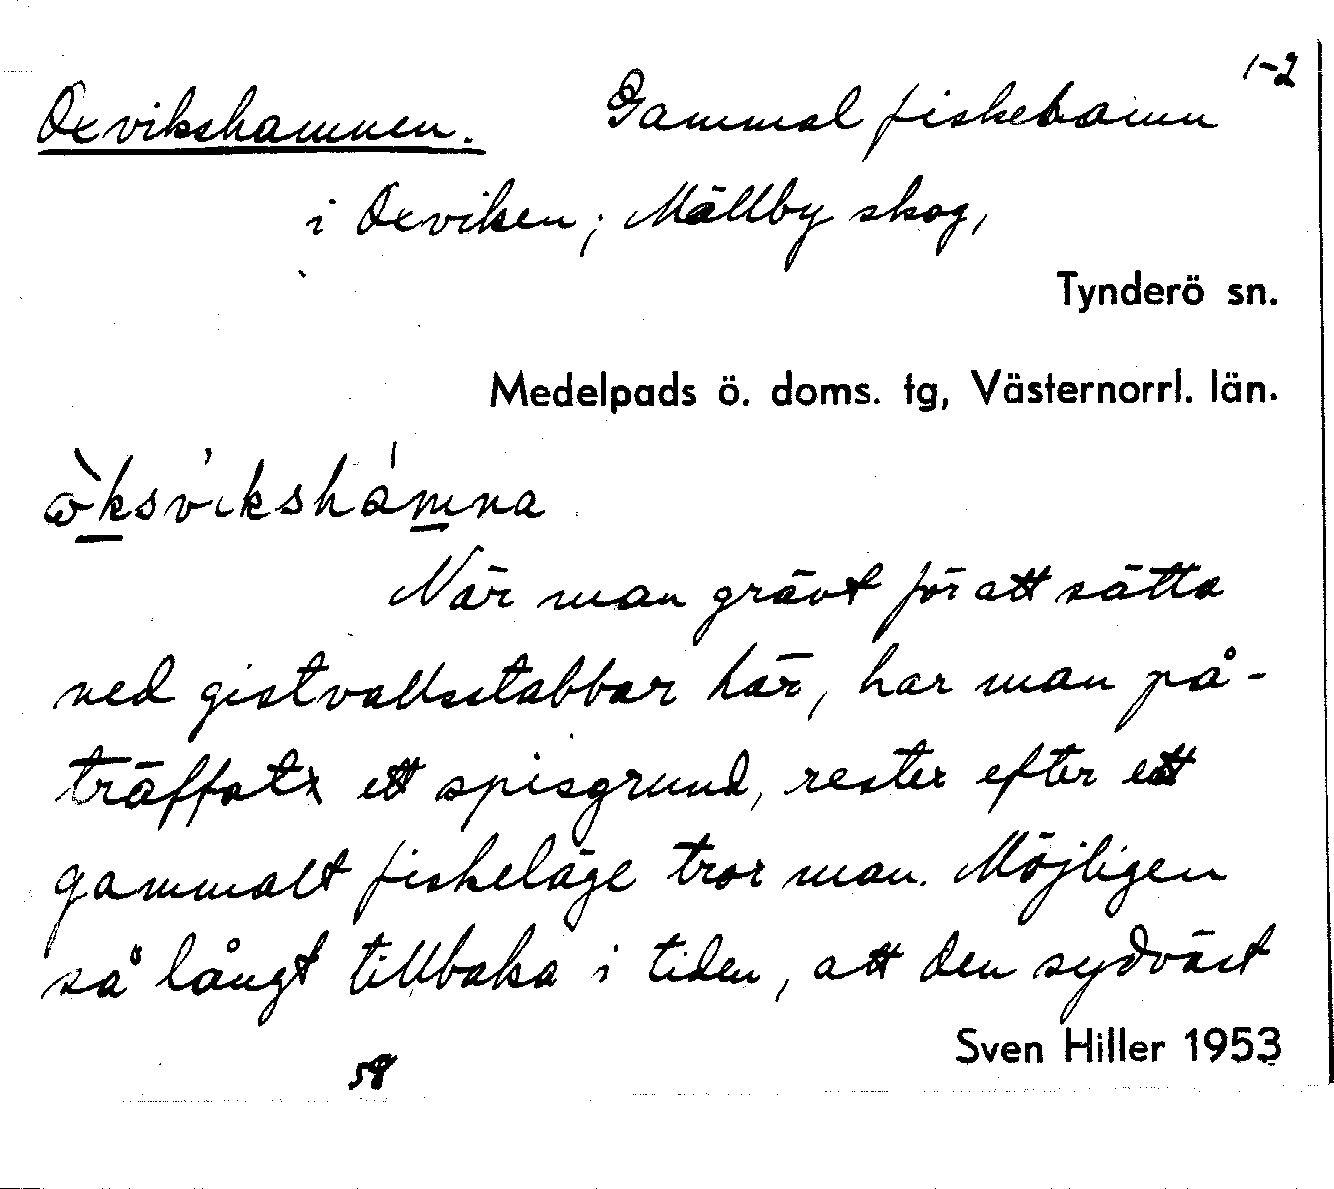 1-2
Oxvikshamnen. Gammal fiskehamn
i Oxviken; Mällby skog,
Tynderö sn.
Medelpads ö. doms. tg, Västernorrl. län.
När man grävt för att sätta
ned gistvallsstabbar här, har man på-
träffat ett spisgrund, rester efter ett
gammalt fiskeläge tror man. Möjligen
så långt tillbaka i tiden, att den sydväst
Sven Hiller 1953
58